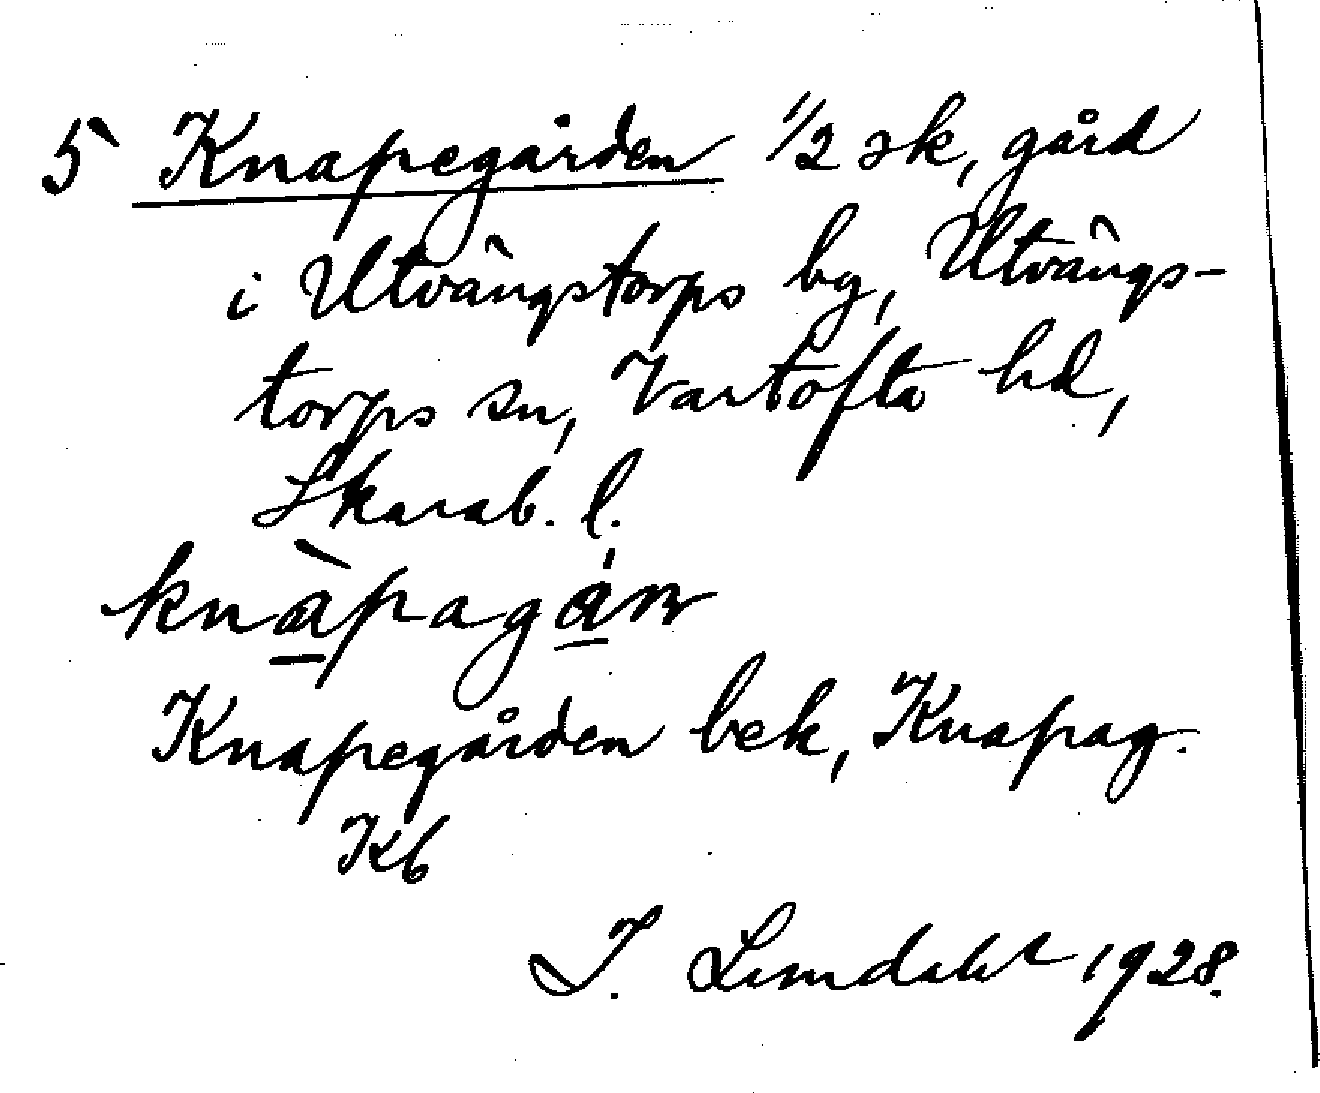 5 Knapegården 1/2 sk, gård
i Utvängstorps by, Utvängs-
torps sn, Vartofta hd,
Skarab. l.
knàpagán
Knapegården bek, Knapag.
Kb
J. Lundahl 1928.